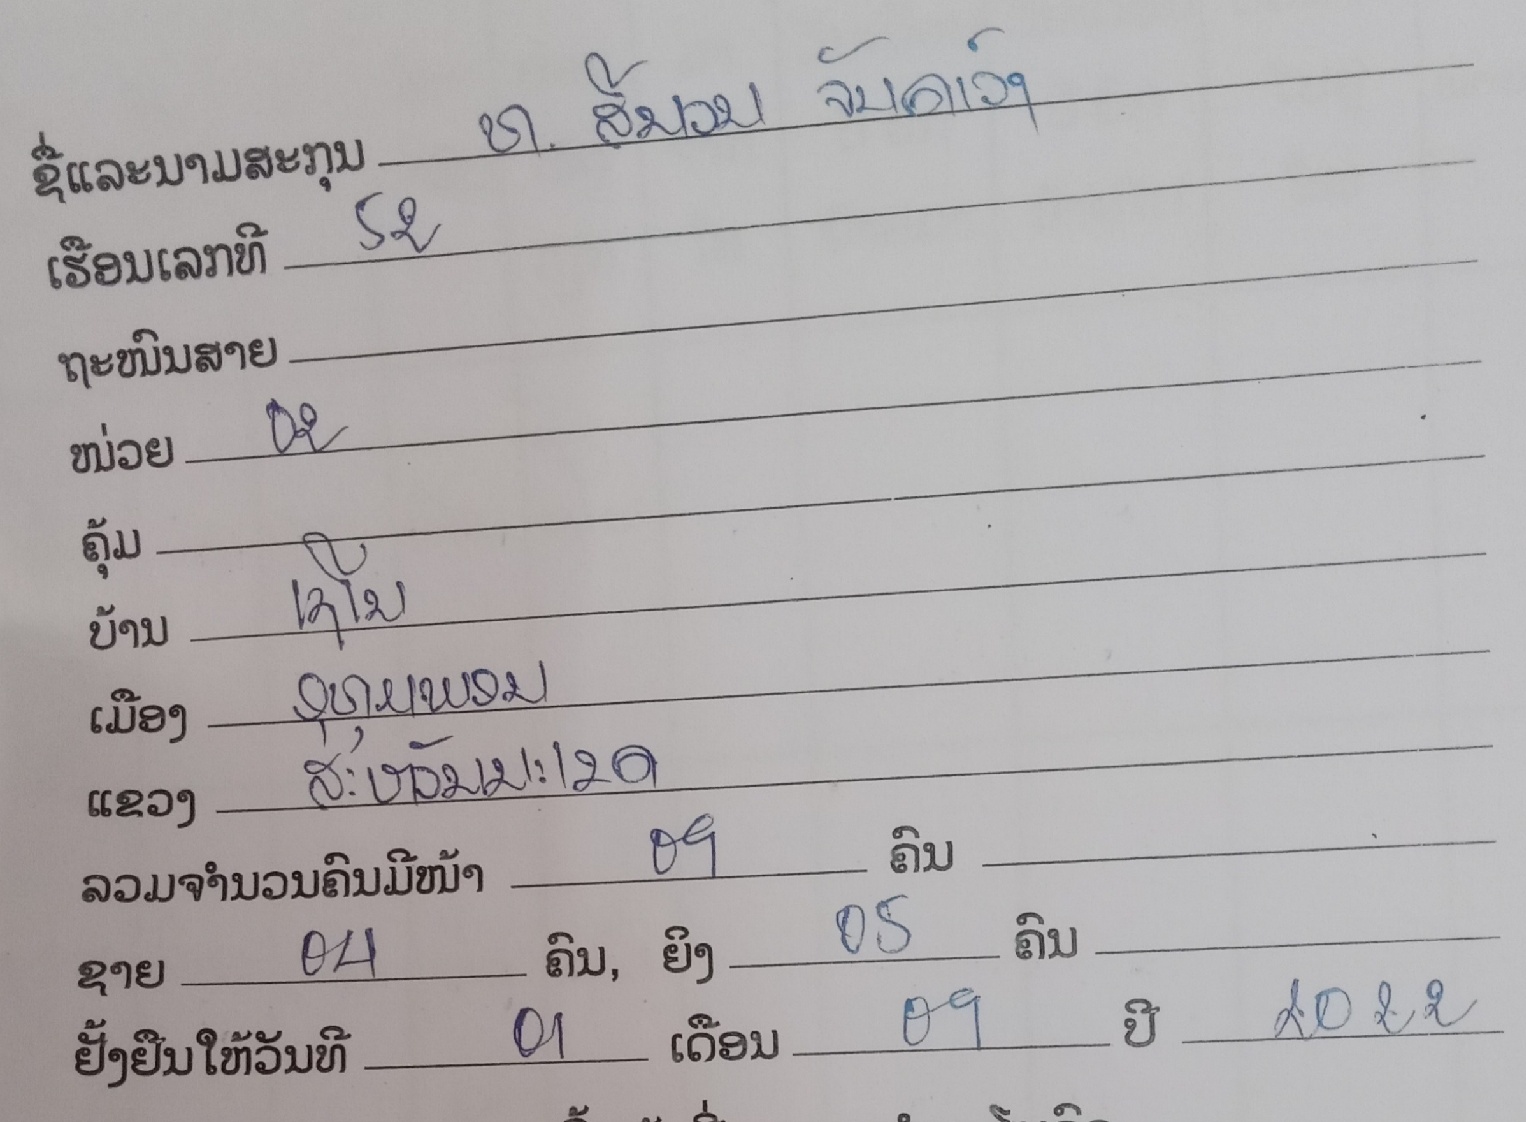 ຊື່ແລະນາມສະກຸນ ທ. ສີນວນ ຈັນຄເວົາ
ເຮືອນເລກທີ 52
ຖະໜົນສາຍ
ໜ່ວຍ 02
ຄຸ້ມ
ບ້ານ ເຊໂນ
ເມືອງ ອຸທຸມພອນ
ແຂວງ ສະຫວັນນະເຂດ
ລວມຈຳນວນຄົນມີໜ້າ 09 ຄົນ
ຊາຍ 04 ຄົນ, ຍິງ 05 ຄົນ
ຢັ້ງຢືນໃຫ້ວັນທີ 01 ເດືອນ 09 ປີ 2022